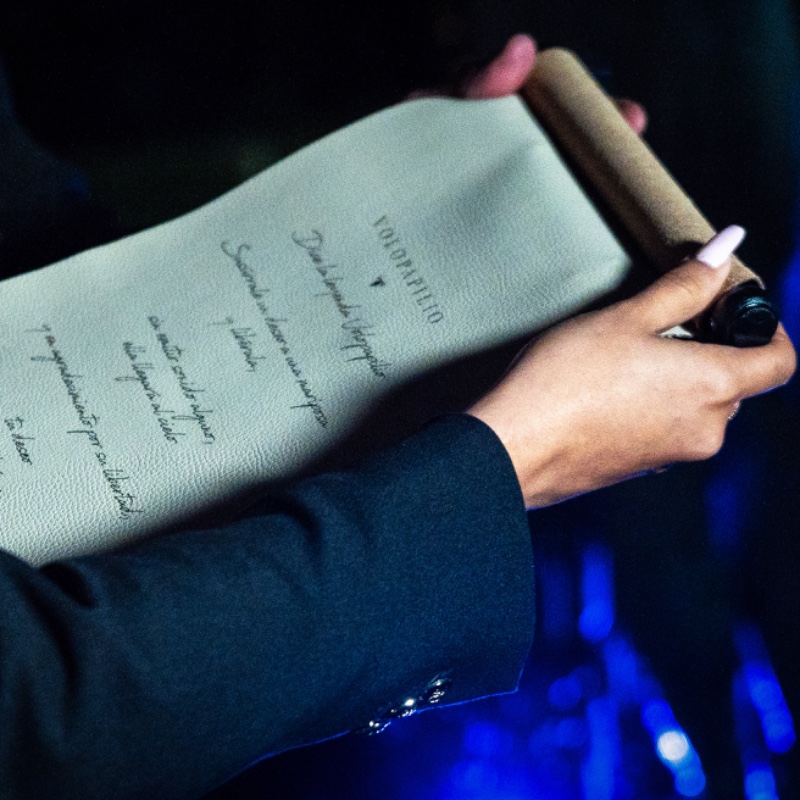 VOLOPAPILIO
Dice la leyenda Volopapilio
Susúrrale un deseo a una mariposa
y libérala,
sin emitir sonido alguno,
ella llegará al cielo
y en agradecimiento por su libertad,
tu deseo